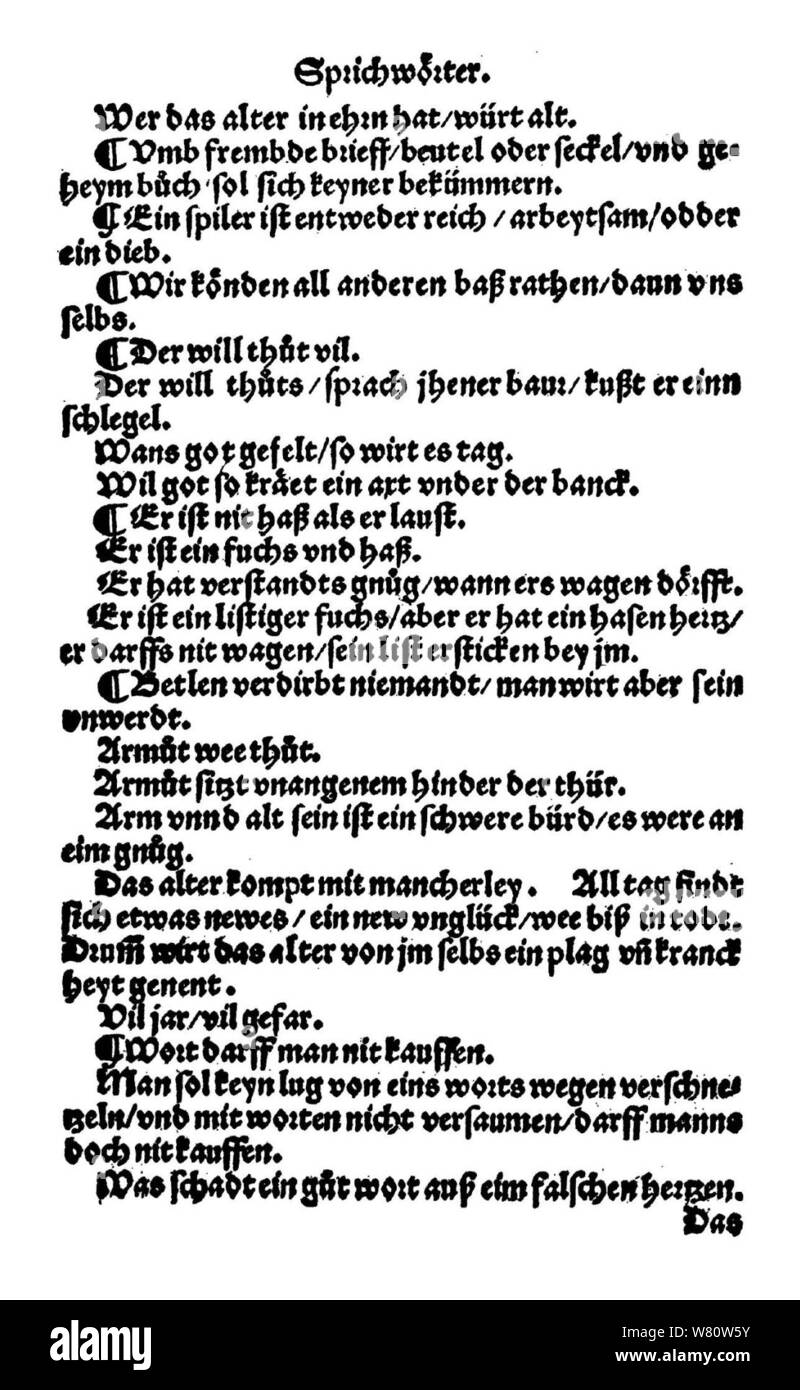 Sprichwörter.
Wer das alter in ehrn hat/würt alt.
¶ Vmb frembde brieff/beutel oder seckel/vnd ge-
heym bůch sol sich keyner bekümmern.
¶ Ein spiler ist entweder reich / arbeytsam/odder
ein dieb.
¶ Wir könden all anderen baß rathen/dann vns
selbs.
¶ Der will thůt vil.
Der will thůts/sprach jhener baur/kußt er einn
schlegel.
Wans got gefelt/so wirt es tag.
Wil got so kräet ein axt vnder der banck.
¶ Er ist nit haß als er laust.
Er ist ein fuchs vnd haß.
Er hat verstandts gnůg/wann ers wagen dörfft.
Er ist ein listiger fuchs/aber er hat ein hasen hertz/
er darffs nit wagen/sein list ersticken bey jm.
¶ Betlen verdirbt niemandt/ man wirt aber sein
vnwerdt.
Armůt wee thůt.
Armůt sitzt vnangenem hinder der thür.
Arm vnnd alt sein ist ein schwere bürd/es were an
eim gnůg.
Das alter kompt mit mancherley. All tag findt
sich etwas newes/ ein new vnglück/wee biß in todt.
Drum̃ wirt das alter von jm selbs ein plag vñ kranck
heyt genent.
Vil jar/vil gefar.
¶ Wort darff man nit kauffen.
Man sol keyn lug von eins worts wegen verschne-
tzeln/vnd mit worten nicht versaumen/darff manns
doch nit kauffen.
Was schadt ein gůt wort auß eim falschen hertzen.
Das
alamy
Image ID: W80W5Y
www.alamy.com